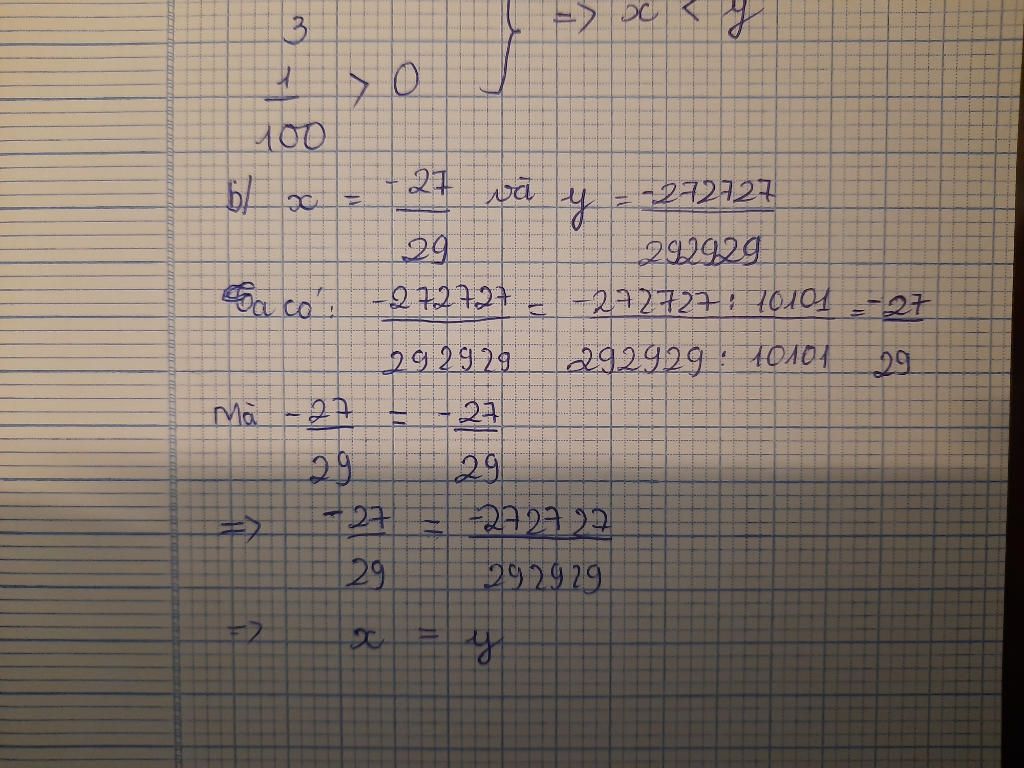 3 } => x < y
1/100 > 0
b/ x = -27/29 và y = -272727/292929
Ta có: -272727/292929 = -272727 : 10101/292929 : 10101 = -27/29
Mà -27/29 = -27/29
=> -27/29 = -272727/292929
=> x = y